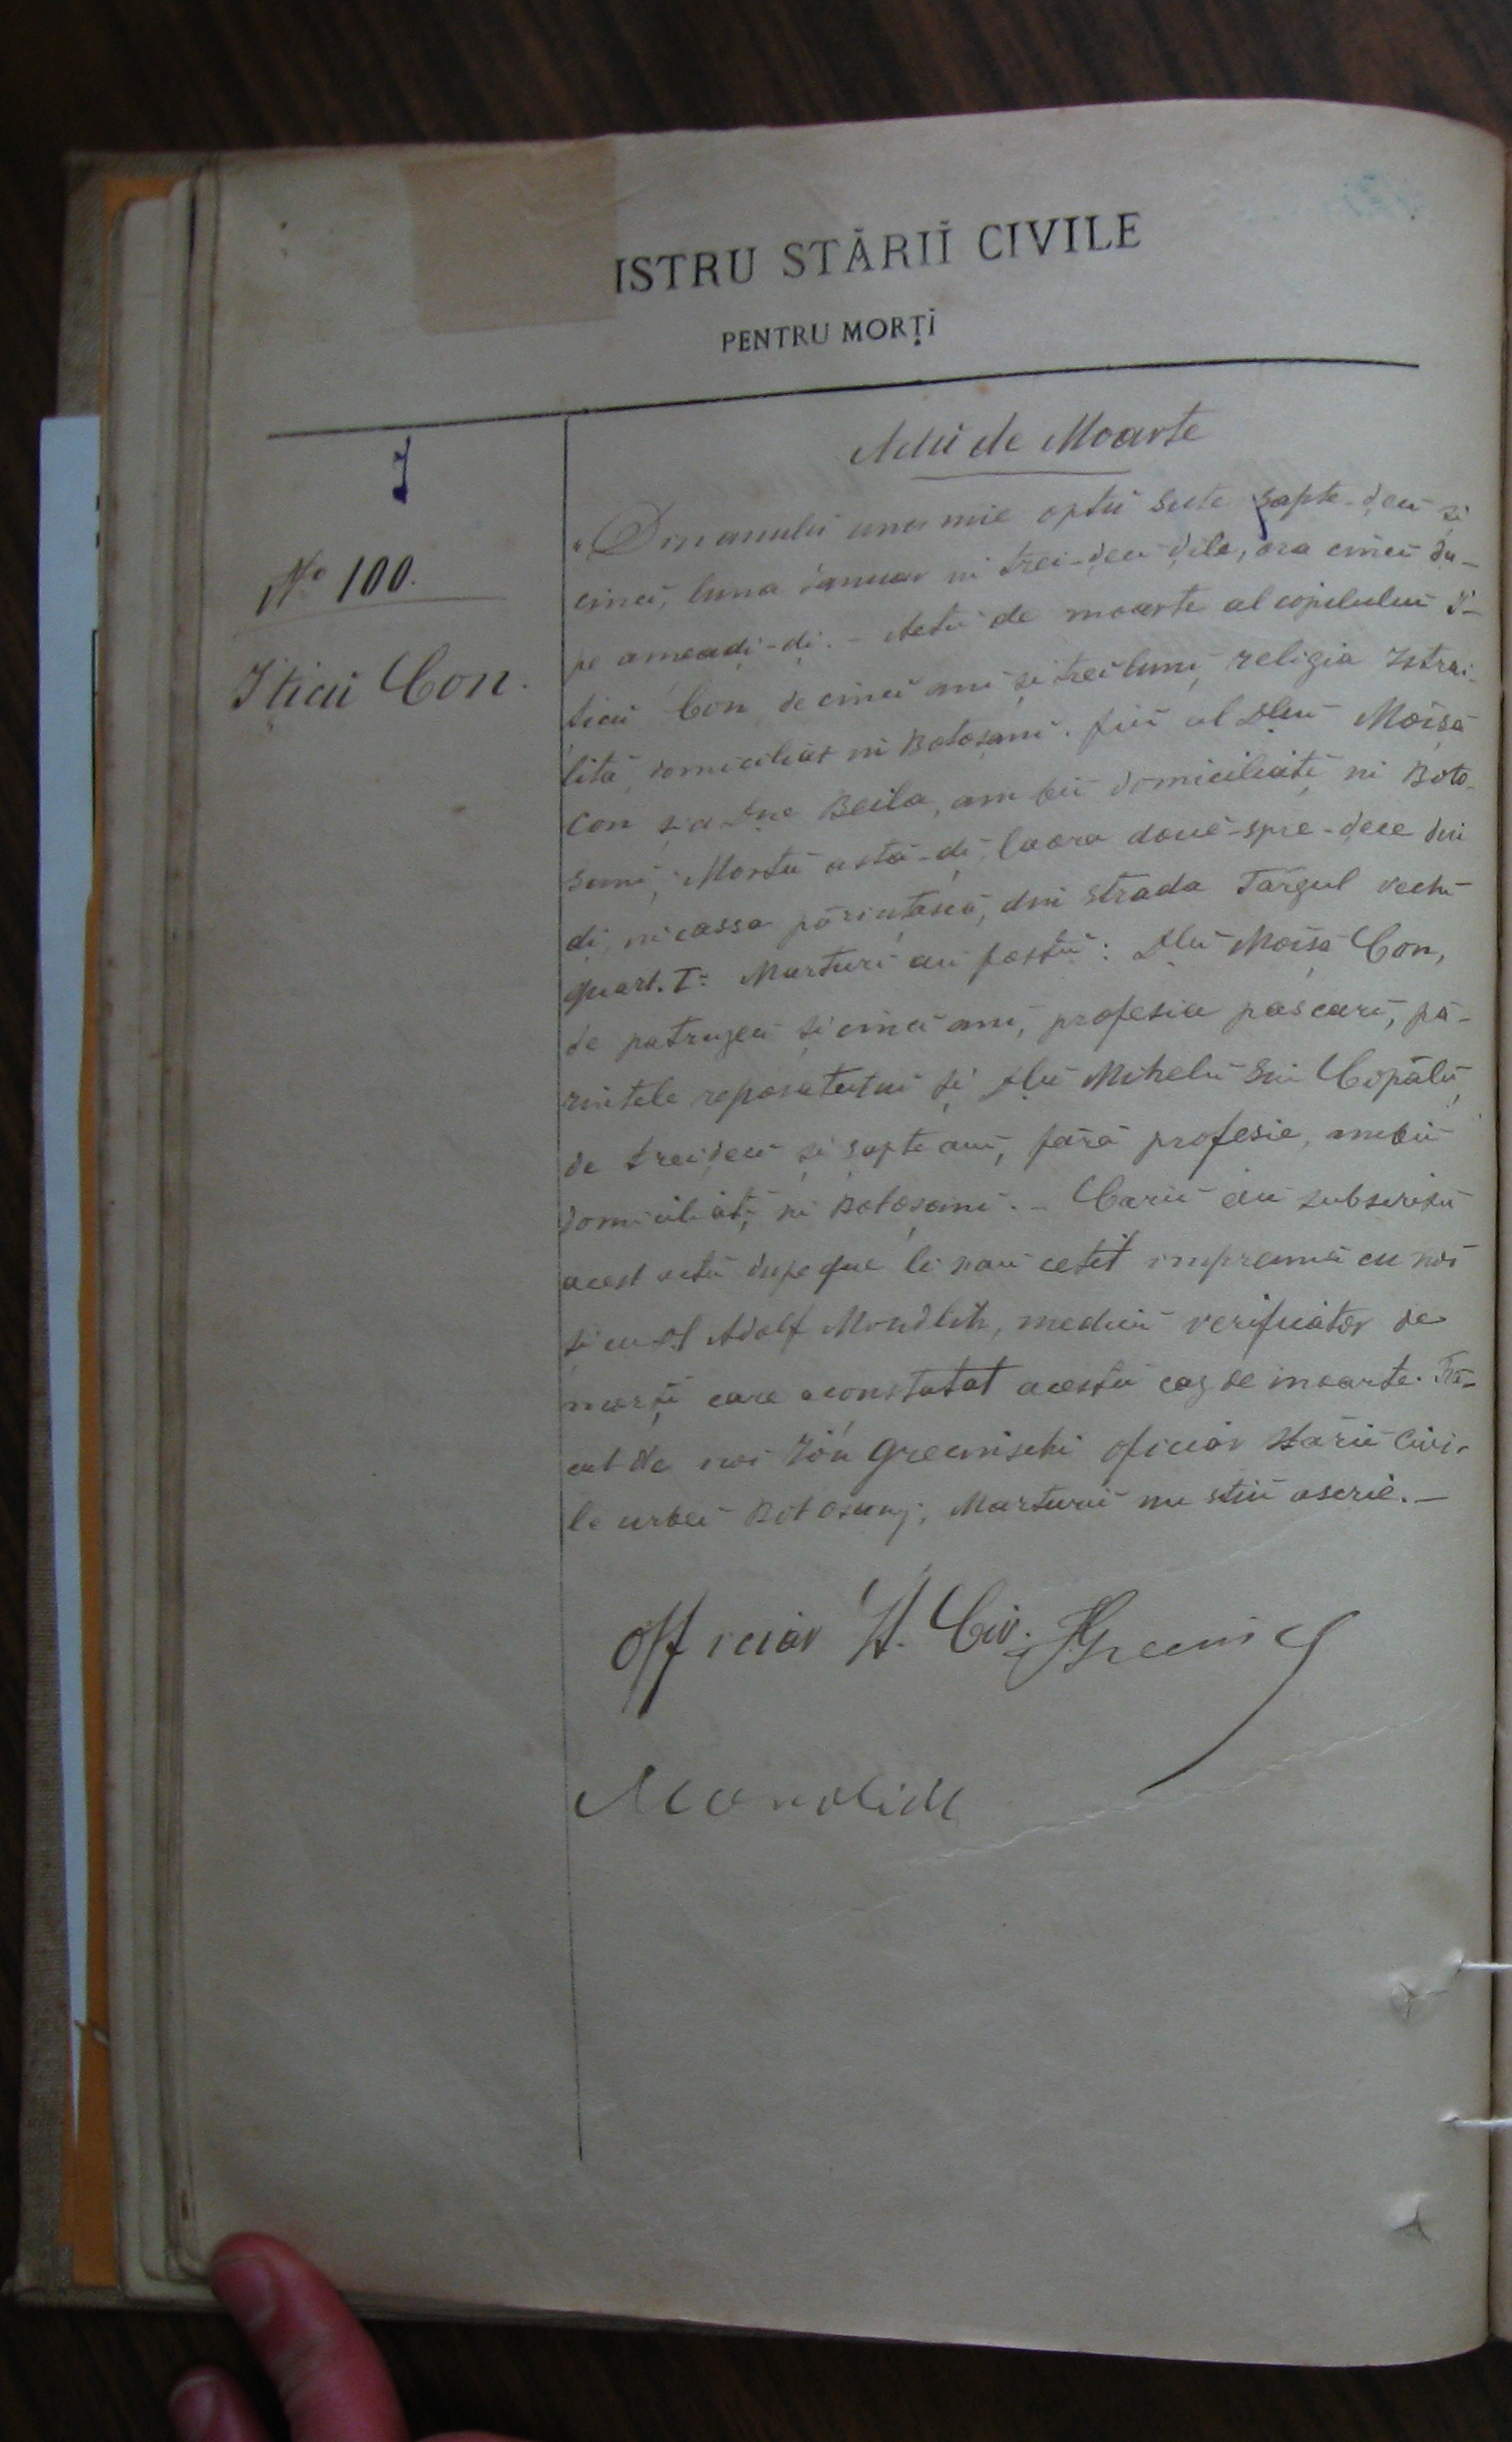 ISTRU STĂRIĬ CIVILE
PENTRU MORȚĬ
I
No 100.
Ițicŭ Con.
Actŭ de Moarte
Din anulŭ una mie optŭ sute șapte-ḑecĭ și
cincĭ, luna Ianuar in trei-ḑecĭ ḑile, ora cincĭ du-
pe ameaḑi-ḑi. - Actŭ de moarte al copiluluĭ I-
țicŭ Con de cincĭ anĭ și treĭ lunĭ, religia Istrai-
lită, domiciliat in Botoșanĭ. fiŭ al Dluĭ Moisă
Con și a Dne Beila, ambiĭ domiciliațĭ in Boto-
șanĭ, Mortŭ astă-ḑĭ, la ora doue-spre-ḑece din
ḑi, in cassa părintască, din strada Târgul vechĭ
quart. I: Marturĭ au fostŭ: Dlŭ Moisă Con,
de patruḑecĭ și cincĭ anĭ, profesia pascarŭ, pă-
rintele reposatuluĭ și Dlŭ Mihelŭ Sin Copălŭ,
de treiḑecĭ și șapte anĭ, fără profesie, ambiĭ
domiciliațĭ in Botoșanĭ. - Cariĭ aŭ subscrisŭ
acest actŭ dupe que li sau cetit impreună cu noĭ
și cu Dl Adolf Mondlih, medicŭ verificator de
morțĭ care a constatat acestŭ caz de moarte. Fă-
cut de noĭ Ión Grecinischi oficiar stăriĭ Civi-
le urbeĭ Botoșanĭ; Marturiĭ nu știŭ a scrie. -
Officiar St. Civ. Grecinis
Mondlich